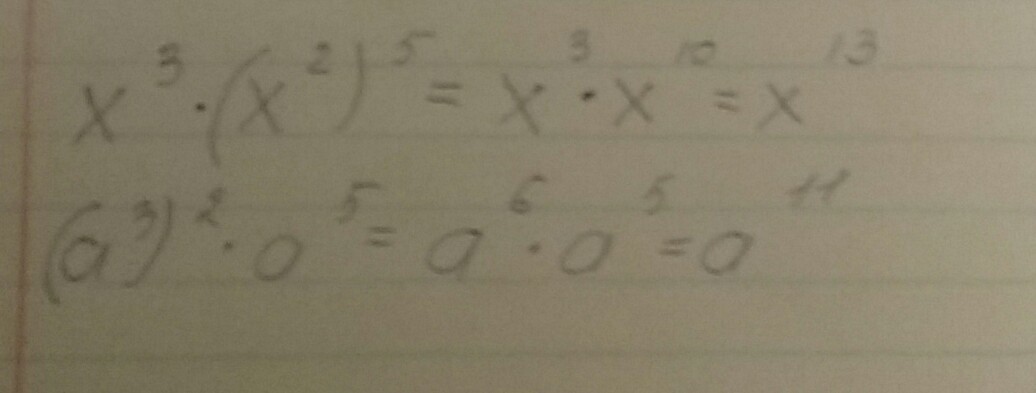 x³·(x²)⁵ = x³·x¹⁰ = x¹³
(a³)²·a⁵ = a⁶·a⁵ = a¹¹